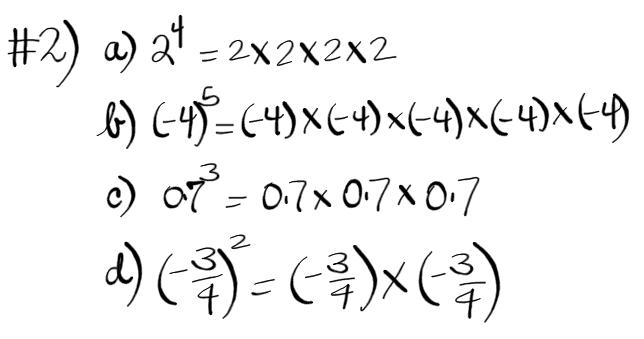 #2) a) 2⁴ = 2×2×2×2
b) (-4)⁵ = (-4)×(-4)×(-4)×(-4)×(-4)
c) 0.7³ = 0.7×0.7×0.7
d) (-3/4)² = (-3/4)×(-3/4)